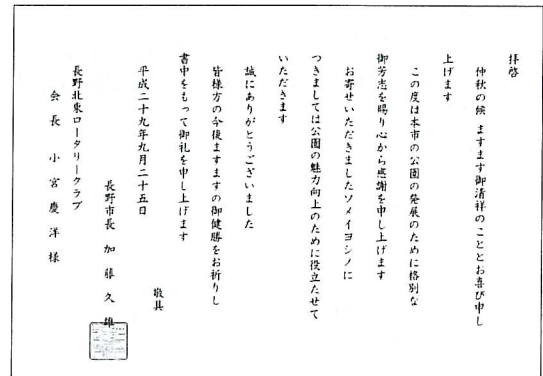 拝啓
仲秋の候 ますます御清祥のこととお喜び申し
上げます
この度は本市の公園の発展のために格別な
御芳志を賜り心から感謝を申し上げます
お寄せいただきましたソメイヨシノに
つきましては公園の魅力向上のために役立たせて
いただきます
誠にありがとうございました
皆様方の今後ますますの御健勝をお祈りし
書中をもって御礼を申し上げます
敬具
平成二十九年九月二十五日
長野市長 加藤久雄
長野北東ロータリークラブ
会長 小宮慶洋様